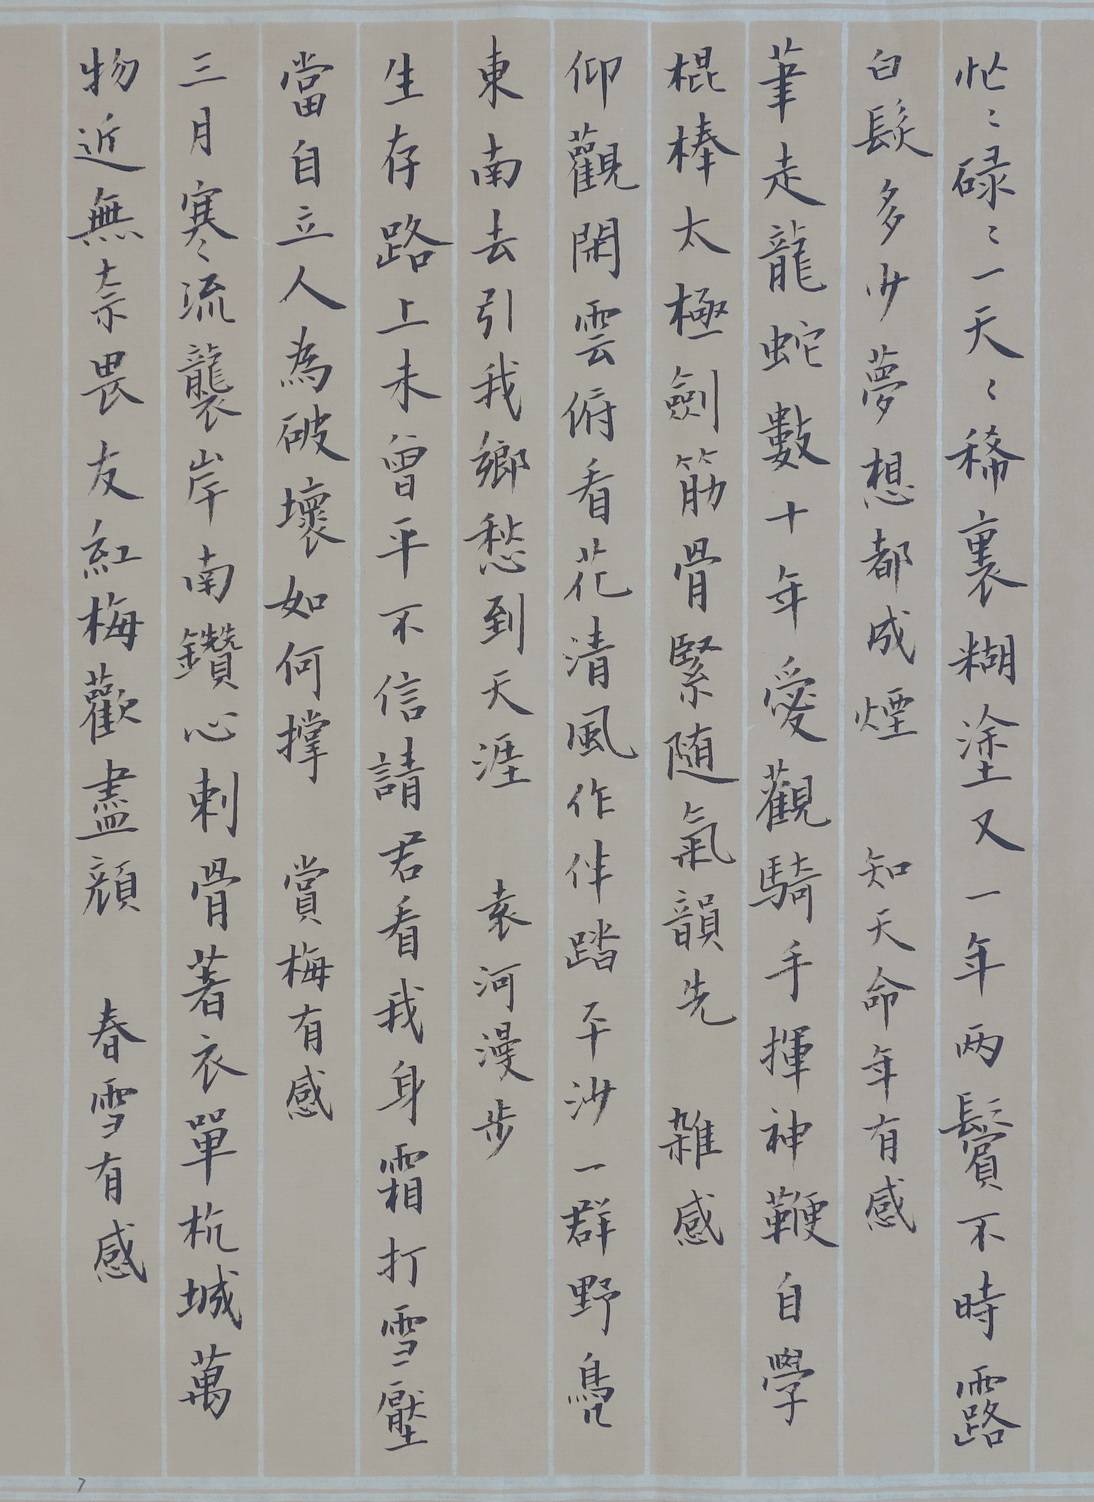 忙〻碌〻一天〻稀裏糊塗又一年兩鬢不時露
白髮多少夢想都成煙 知天命年有感
筆走龍蛇數十年愛觀騎手揮神鞭自學
棍棒太極劍筋骨緊随氣韻先 雜感
仰觀閑雲俯看花清風作伴踏平沙一群野鳬
東南去引我鄉愁到天涯 袁河漫步
生存路上未曾平不信請君看我身霜打雪壓
當自立人為破壞如何撑 賞梅有感
三月寒流襲岸南鑽心刺骨著衣單杭城萬
物近無奈畏友紅梅歡盡顔 春雪有感
7